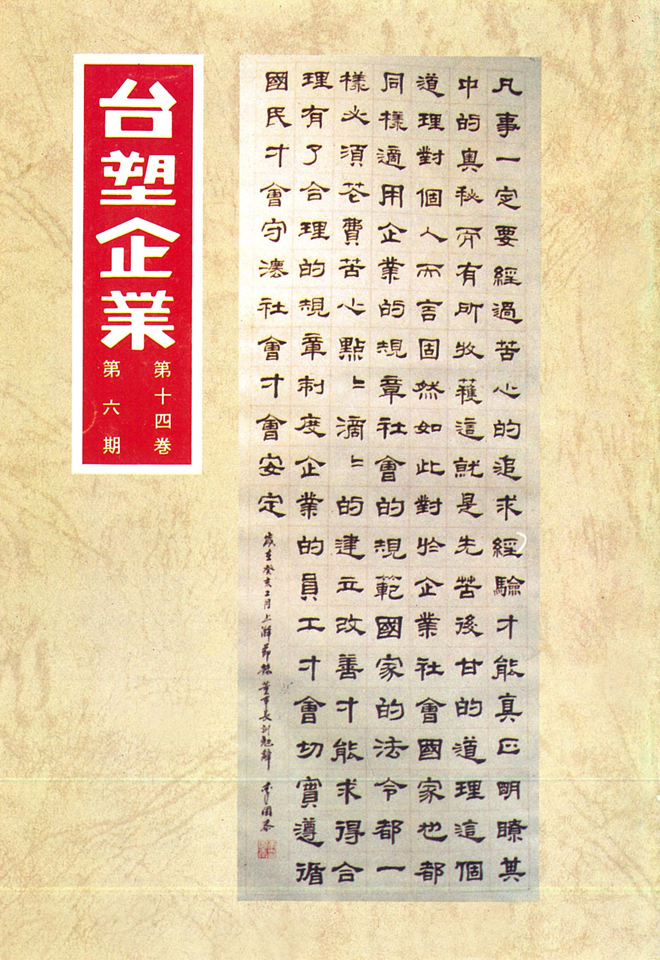 台塑企業
第十四卷
第六期
凡事一定要經過苦心的追求經驗才能真正明瞭其
中的奧秘而有所收穫這就是先苦後甘的道理這個
道理對個人而言固然如此對於企業社會國家也都
同樣適用企業的規章社會的規範國家的法令都一
樣必須花費苦心點〻滴〻的建立改善才能求得合
理有了合理的規章制度企業的員工才會切實遵循
國民才會守法社會才會安定
歲在癸亥二月上澣節錄董事長訓勉辭